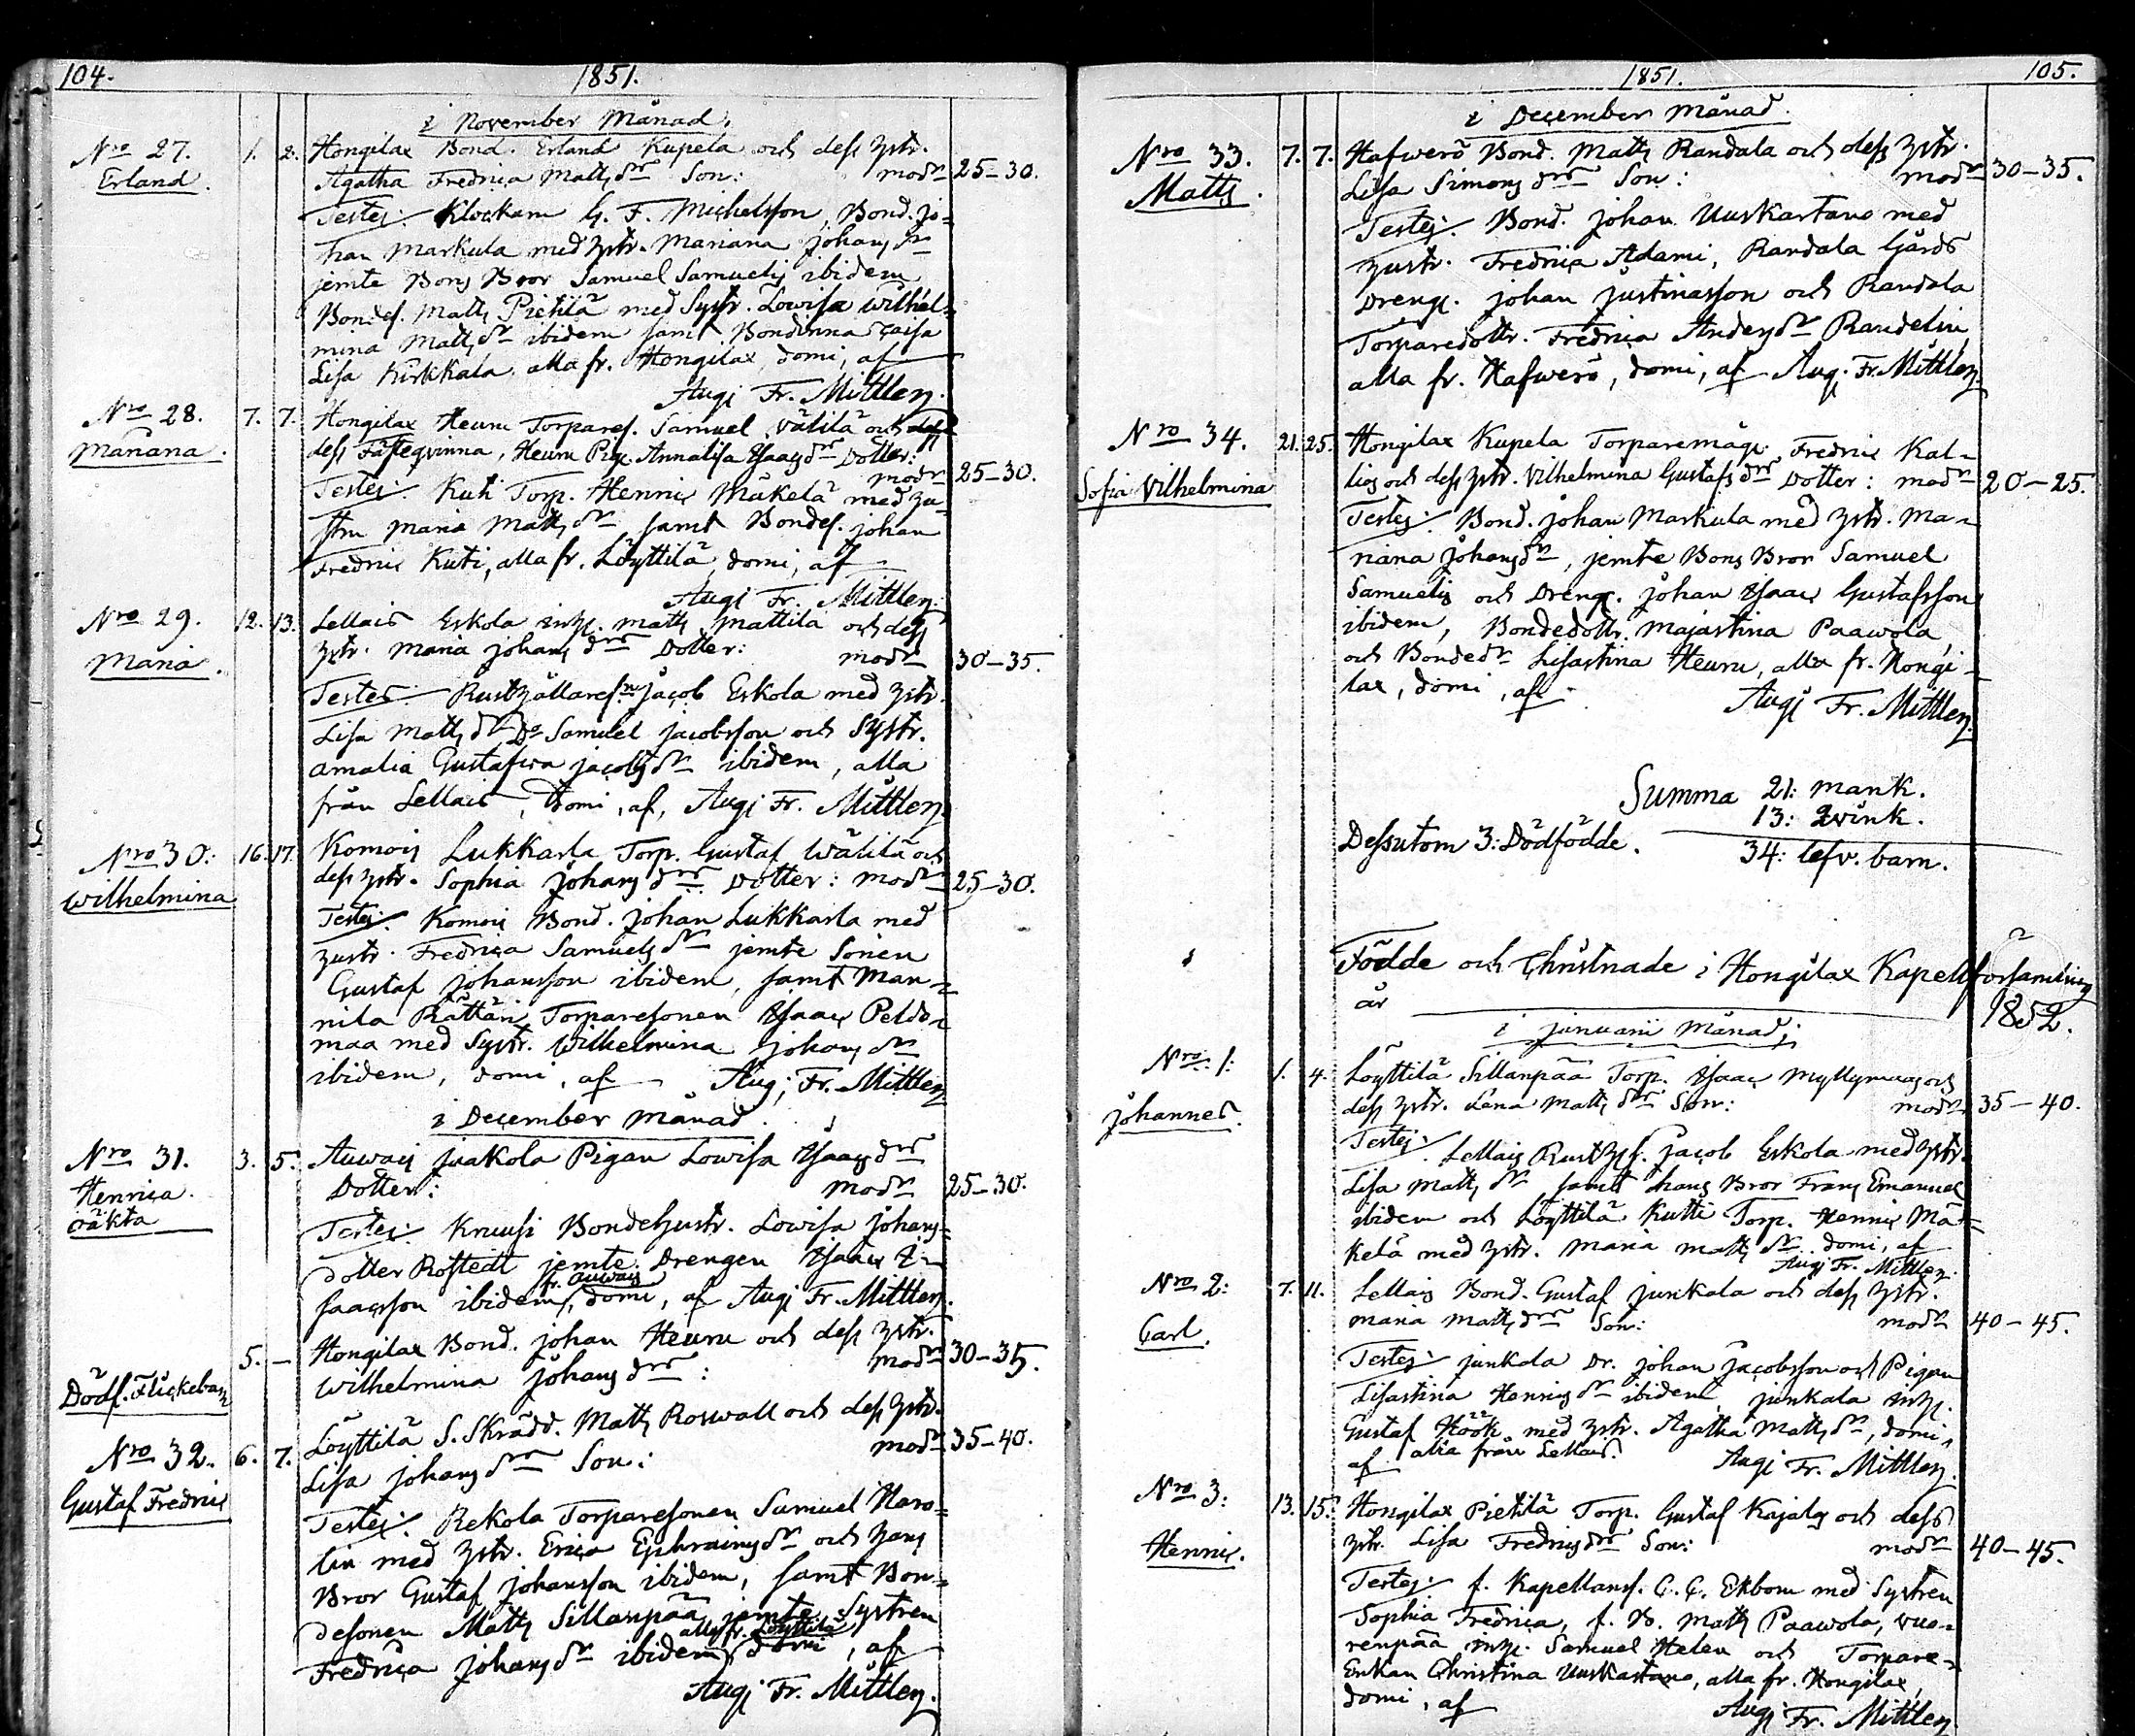 104.
1851.
i November Månad.
Nro 27. 1. 2. Hongilax Bond. Erland Kupela och dess hstr.
Erland. Agatha Fredrica Matts dr Son: modr 25-30.
Testes: Klockarn G. F. Michelsson, Bond. Jo-
han Markula med hstr. Mariana Johans dr
jemte Bons Bror Samuel Samuelis ibidem
Bondes. Matts Pietilä med Systr. Lowisa Wilhel-
mina Matts dr ibidem samt Bondinna Cajsa
Lisa Kirkkala, alla fr. Hongilax, domi, af
Aug: Fr. Mittler.
Nro 28. 7. 7. Hongilax Heuru Torpares. Samuel Välilä och
Mariana. dess Fästeqvinna, Heuru Pig. Annalisa Isaacs dr Dotter:
modr 25-30.
Testes: Kuti Torp. Henric Mäkelä med hu-
stru Maria Matts dr samt Bondes. Johan
Fredric Kuti, alla fr. Löyttilä, domi, af
Aug: Fr. Mittler.
Nro 29. 12. 13. Lellais Eskola inh. Matts Mattila och dess
Maria. hstr. Maria Johans dr Dotter: modr 30-35.
Testes: Rusthållares. Jacob Eskola med hstr.
Lisa Matts dr Do Samuel Jacobsson och Systr.
Amalia Gustafwa Jacobs dr ibidem, alla
från Lellais, domi, af, Aug: Fr. Mittler.
Nro 30: 16. 17. Komois Lukkarla Torp. Gustaf Wälilä och
Wilhelmina dess hstr. Sophia Johans dr Dotter: modr 25-30.
Testes: Komois Bond. Johan Lukkarla med
hustr. Fredrica Samuels dr jemte Sonen
Gustaf Johansson ibidem, samt Man-
nila Rättäri Torparesonen Isaac Peldo-
maa med Systr. Wilhelmina Johans dr
ibidem, domi, af Aug: Fr. Mittler
i December Månad.
Nro 31. 3. 5. Auwais Jaakola Pigan Lowisa Isaacs dr
Henrica Dotter: modr 25-30.
oäkta
Testes: Kruusi Bondehustr. Lowisa Johans-
dotter Rostedt jemte Drengen Isaac I-
fr. Auwais
saacsson ibidem, domi, af Aug: Fr. Mittler.
5. - Hongilax Bond. Johan Heuru och dess hstr.
Dödf. Flickebarn Wilhelmina Johans dr: modr 30-35.
Löyttilä S. Skrädd. Matts Roswall och dess hstr.
Nro 32. 6. 7. Lisa Johans dr Son: modr 35-40.
Gustaf Fredric
Testes: Rekola Torparesonen Samuel Haro-
lin med hstr. Erica Ephraims dr och hans
Bror Gustaf Johansson ibidem, samt Bon-
desonen Matts Sillanpää jemte Systren
alla fr. Löyttilä
Fredrica Johans dr ibidem, domi, af
Aug: Fr. Mittler.
1851.
105.
i December Månad.
Nro 33. 7. 7. Hafwerö Bond. Matts Randala och dess hstr.
Matts. Lisa Simons dr Son: modr 30-35.
Testes: Bond. Johan Uuskartano med
hustr. Fredrica Adami, Randala Gårds
Dreng. Johan Justinasson och Randala
Torparedottr. Fredrica Anders dr Randelin,
alla fr. Hafwerö, domi, af Aug: Fr. Mittler.
Nro 34. 21. 25. Hongilax Kupela Torparemåg. Fredric Kal-
Sofia Vilhelmina lios och dess hstr. Vilhelmina Gustafs dr Dotter: modr 20-25.
Testes: Bond. Johan Markula med hstr. Ma-
riana Johans dr, jemte Bons Bror Samuel
Samuelis och Dreng. Johan Isaac Gustafsson
ibidem, Bondedottr. Majastina Paawola,
och Bondedr Lisastina Heuru, alla fr. Hongi-
lax, domi, af
Aug: Fr. Mittler.
Summa 21: mank.
13: qvink.
Dessutom 3: Dödfödde. 34: lefv. barn.
Födde och Christnade i Hongilax Kapellförsamling
år 1852.
i Januarii Månad;
Nro 1: 1. 4. Löyttilä Sillanpää Torp. Isaac Myllymaa och
Johannes. dess hstr. Lena Matts dr Son: modr 35-40.
Testes: Lellais Rusths. Jacob Eskola med hstr.
Lisa Matts dr samt hans Bror Frans Emanuel
ibidem och Löyttilä Kutti Torp. Henric Mä-
kelä med hstr. Maria Matts dr domi, af
Aug: Fr. Mittler.
Nro 2: 7. 11. Lellais Bond. Gustaf Junkala och dess hstr.
Carl. Maria Matts dr Son: modr 40-45.
Testes: Junkala Dr. Johan Jacobsson och Pigan
Lisastina Henrics dr ibidem, Junkala inh.
Gustaf Höök med hstr. Agatha Matts dr, domi,
af alla från Lellais. Aug: Fr. Mittler.
Nro 3: 13. 15. Hongilax Pietilä Torp. Gustaf Kajalas och dess
Henric. hstr. Lisa Fredrics dr Son: modr 40-45.
Testes: f. Kapellans. C. G. Ekbom med Systren
Sophia Fredrica, f. B. Matts Paawola, Vuo-
renpää inh. Samuel Helen och Torpare-
Enkan Christina Uuskartano, alla fr. Hongilax,
domi, af Aug: Fr. Mittler